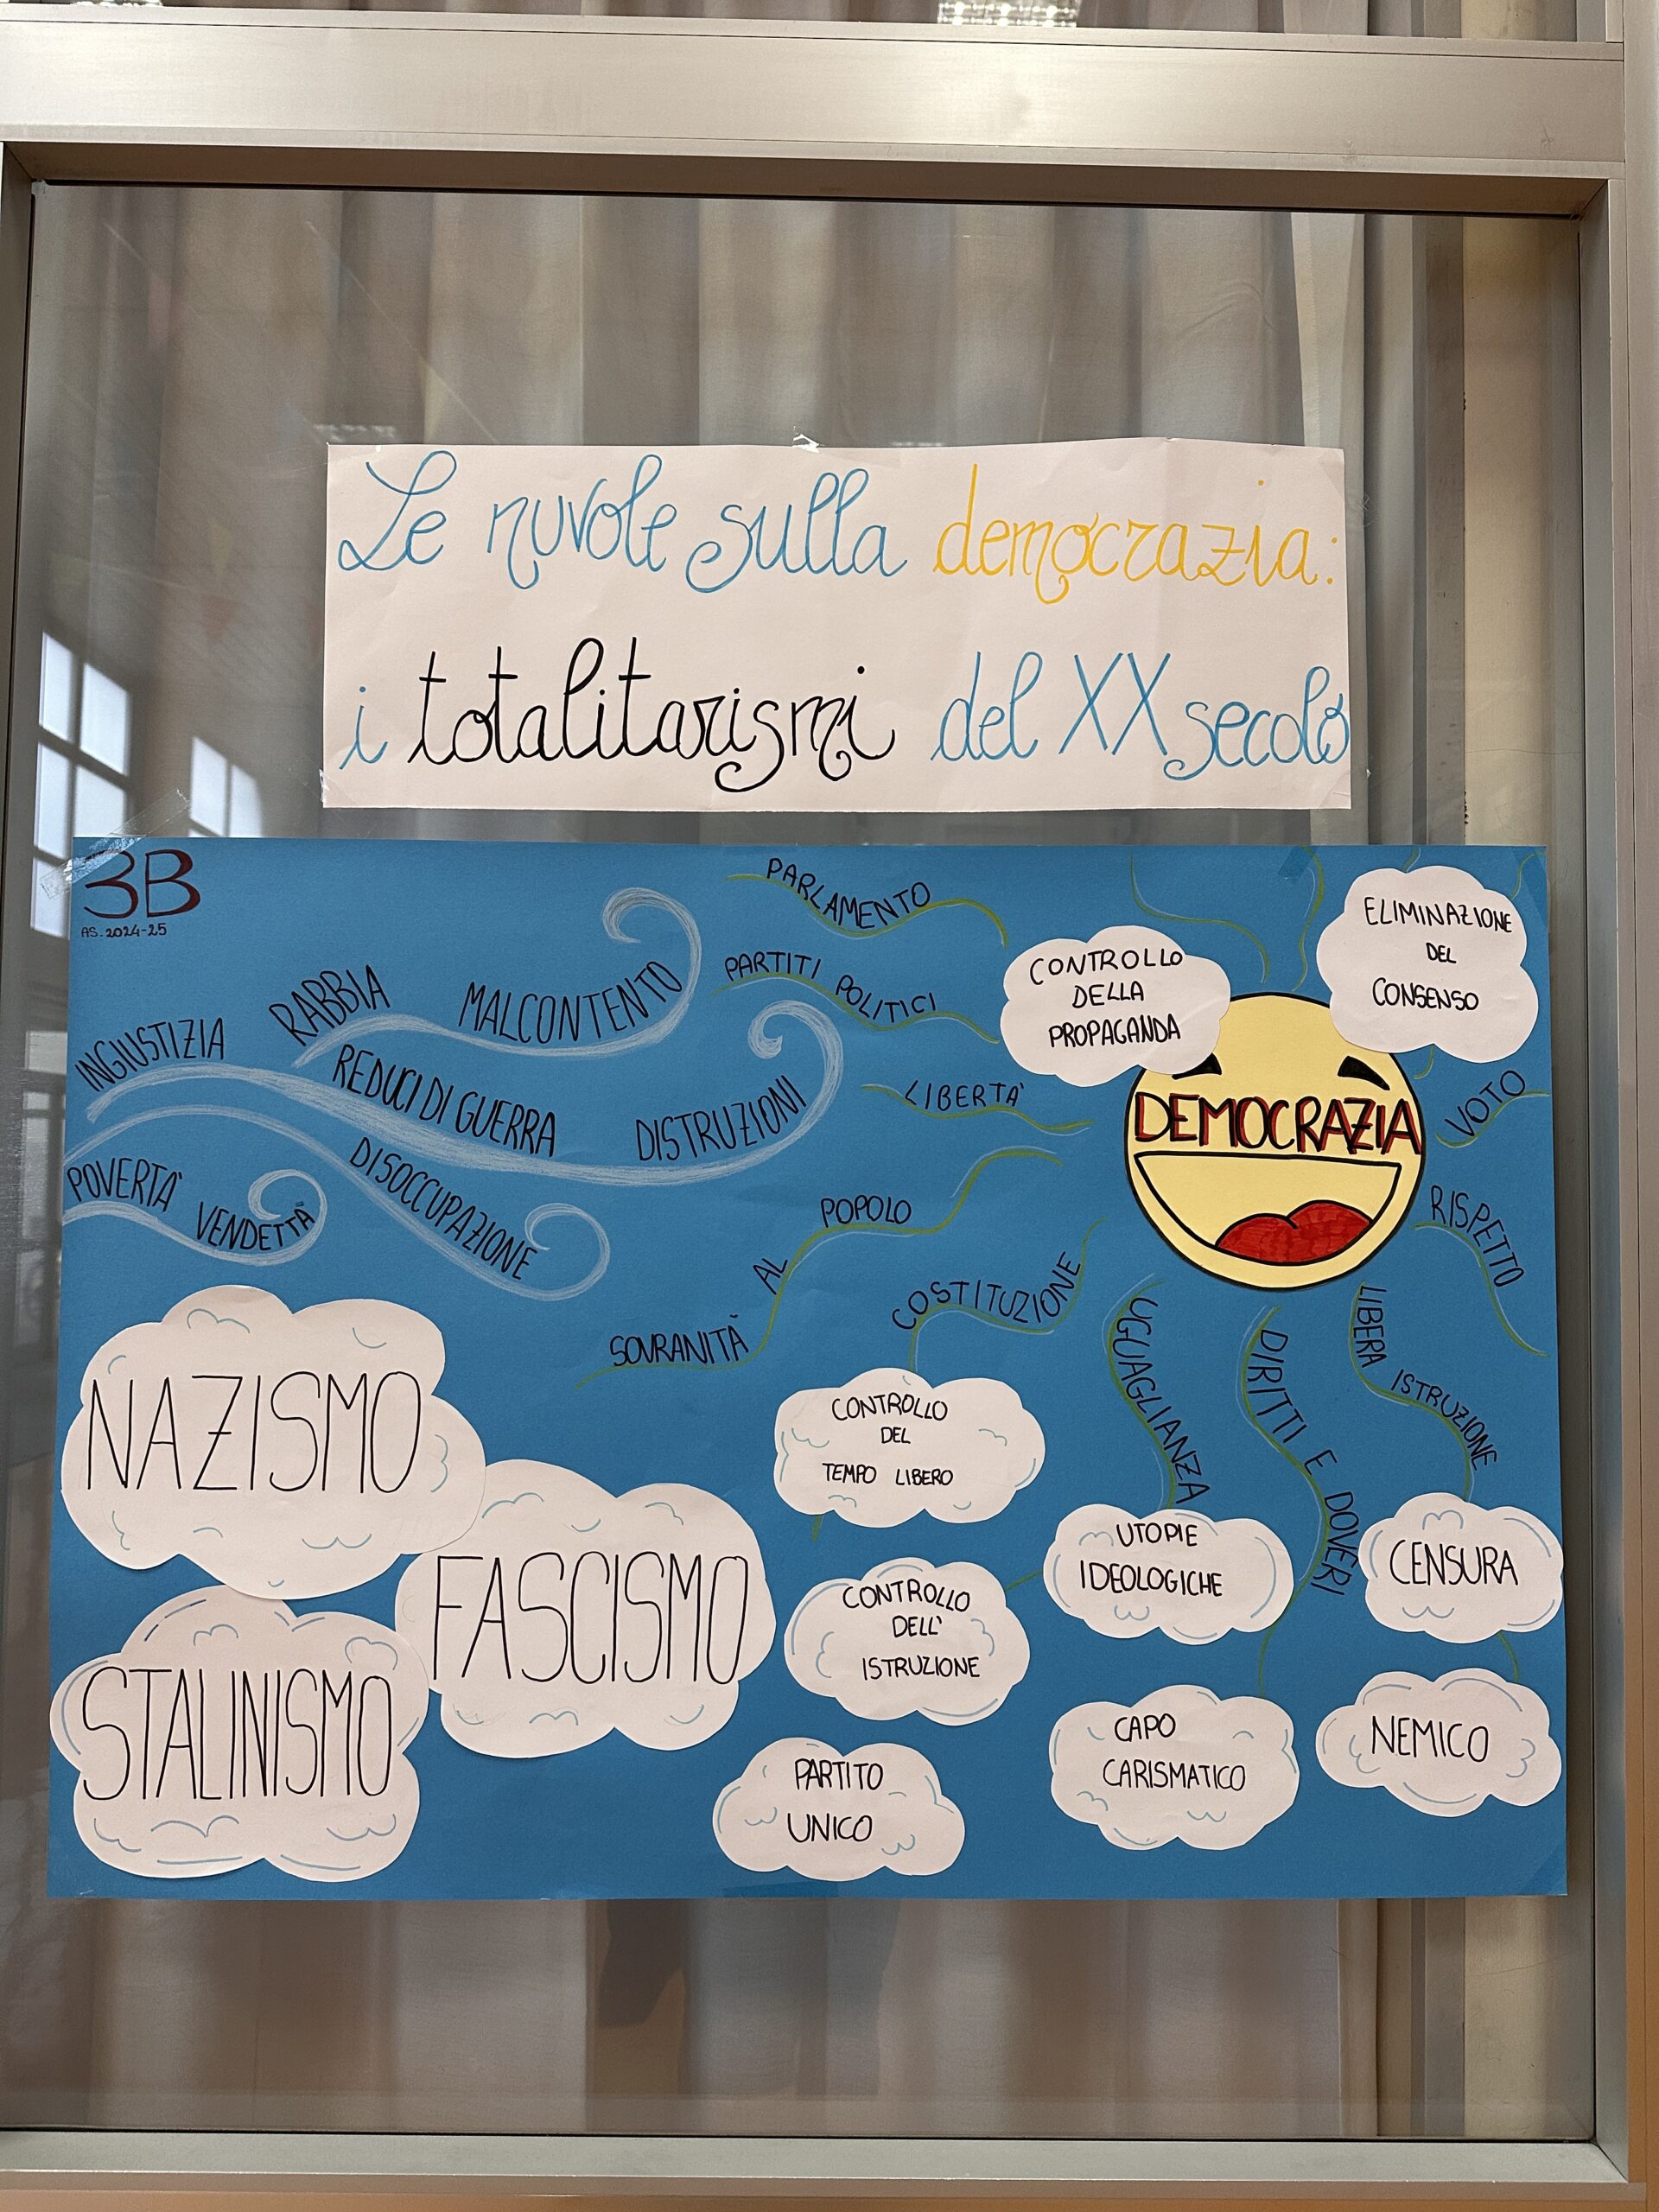 Le nuvole sulla democrazia:
i totalitarismi del XX secolo
3B
AS. 2024-25
INGIUSTIZIA
RABBIA
MALCONTENTO
REDUCI DI GUERRA
DISTRUZIONI
POVERTA'
VENDETTA
DISOCCUPAZIONE
PARLAMENTO
PARTITI POLITICI
LIBERTA'
SOVRANITÀ AL POPOLO
COSTITUZIONE
UGUAGLIANZA
DIRITTI E DOVERI
LIBERA ISTRUZIONE
RISPETTO
VOTO
CONTROLLO
DELLA
PROPAGANDA
ELIMINAZIONE
DEL
CONSENSO
DEMOCRAZIA
NAZISMO
FASCISMO
STALINISMO
CONTROLLO
DEL
TEMPO LIBERO
CONTROLLO
DELL'
ISTRUZIONE
PARTITO
UNICO
UTOPIE
IDEOLOGICHE
CENSURA
CAPO
CARISMATICO
NEMICO